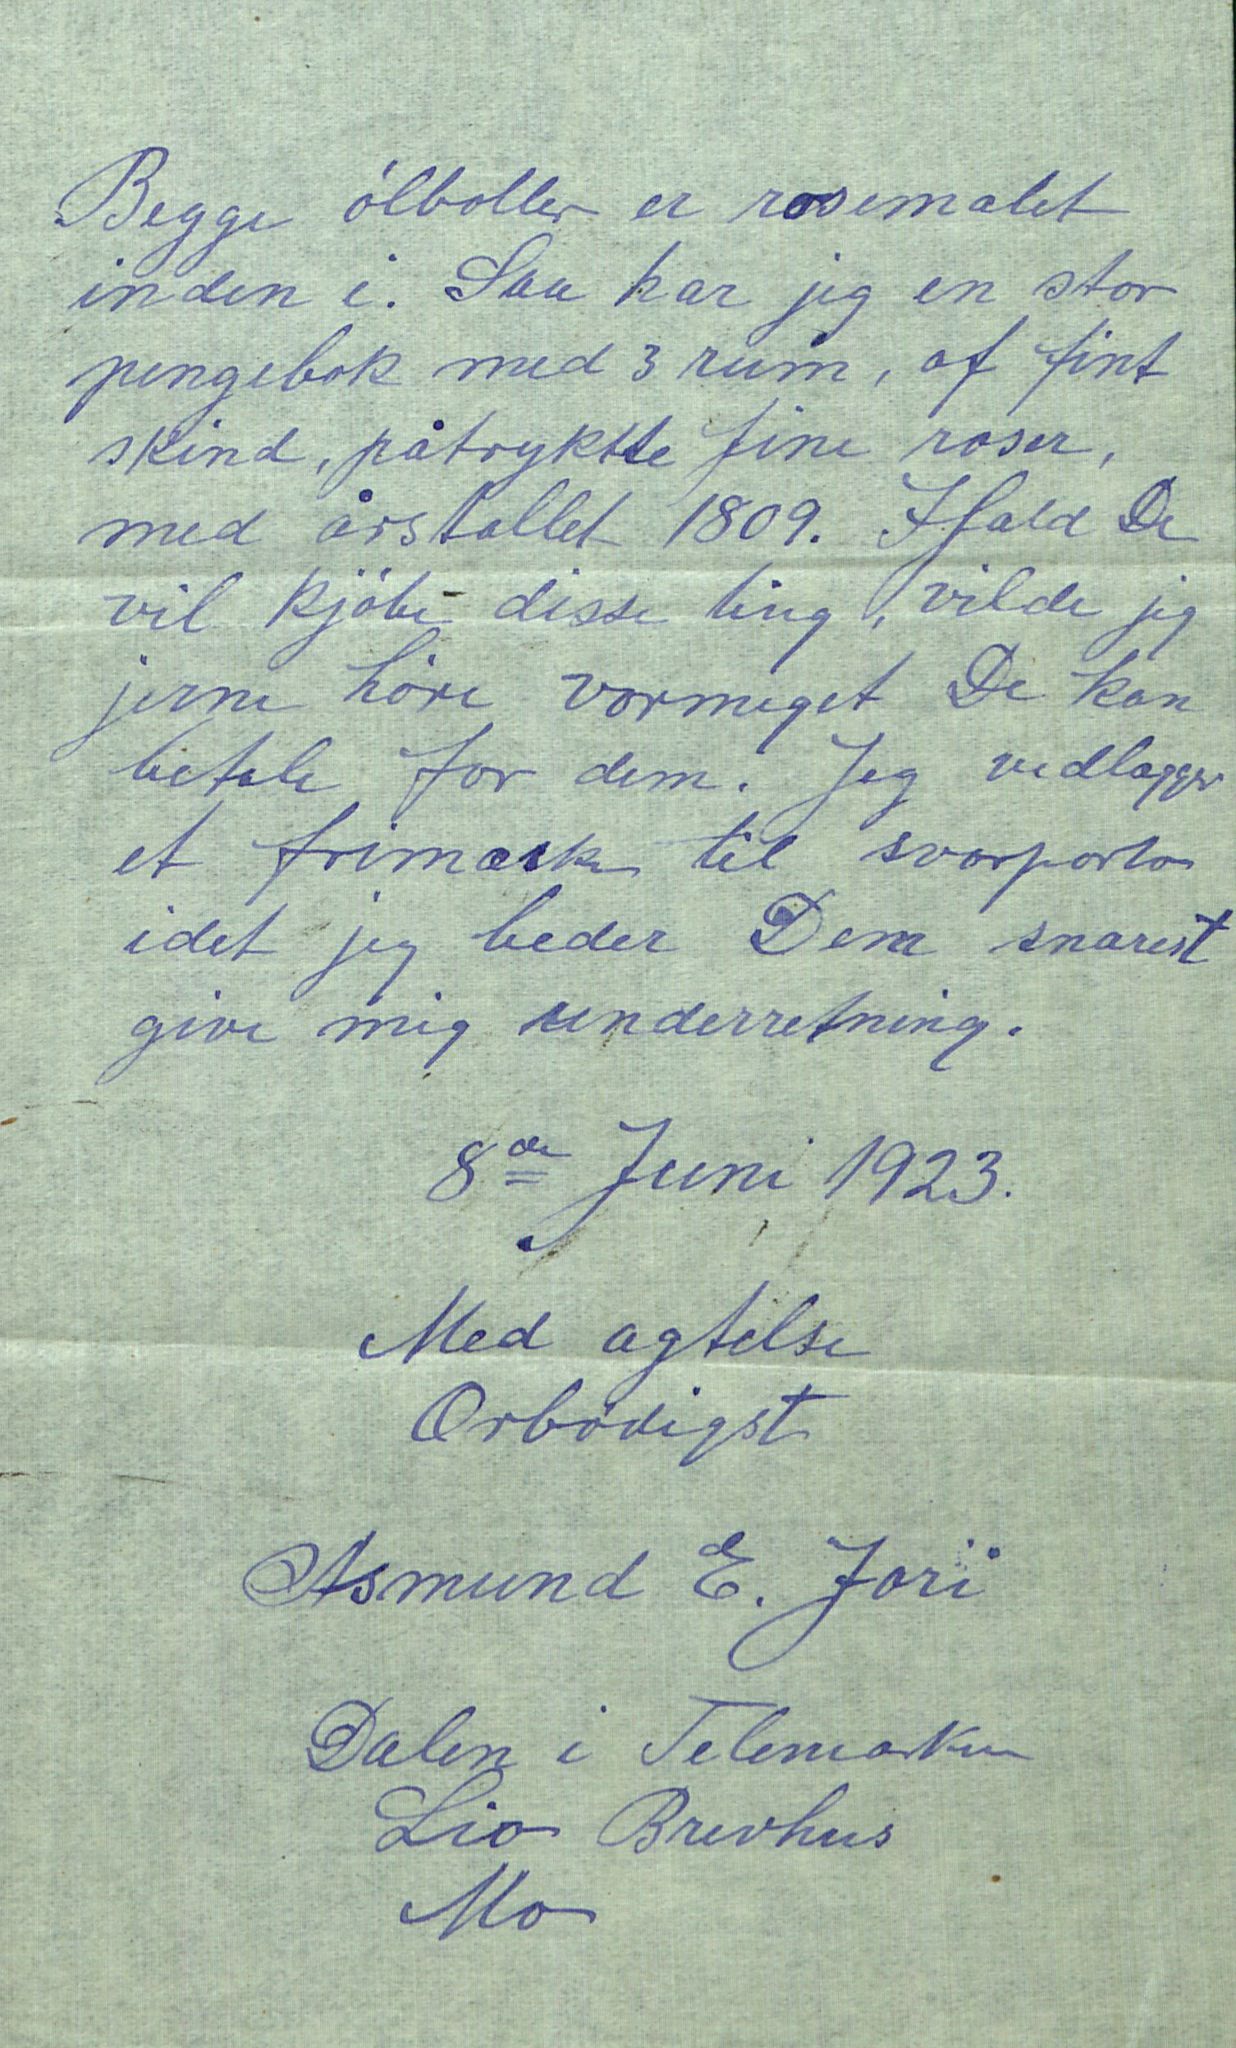 Begge ölboller er rosemalet
inden i. Saa har jeg en stor
pengebok med 3 rum, af fint
skind, påtryktte fine roser,
med årstallet 1809. Ifald De
vil kjöbe disse ting, vilde jeg
jerne höre vormeget De kan
betale for dem. Jeg vedlægger
et frimærke til svarporto
idet jeg beder Dem snarest
give mig underretning.
8de Juni 1923.
Med agtelse
Ærbödigst
Asmund E. Jori
Dalen i Telemarken
Lio Brevhus
Mo